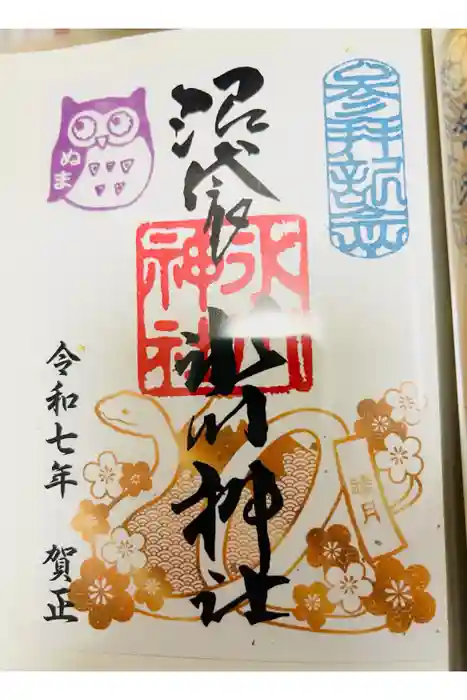 参拝記念
沼袋氷川神社
氷川神社
ぬま
睦月
令和七年 賀正